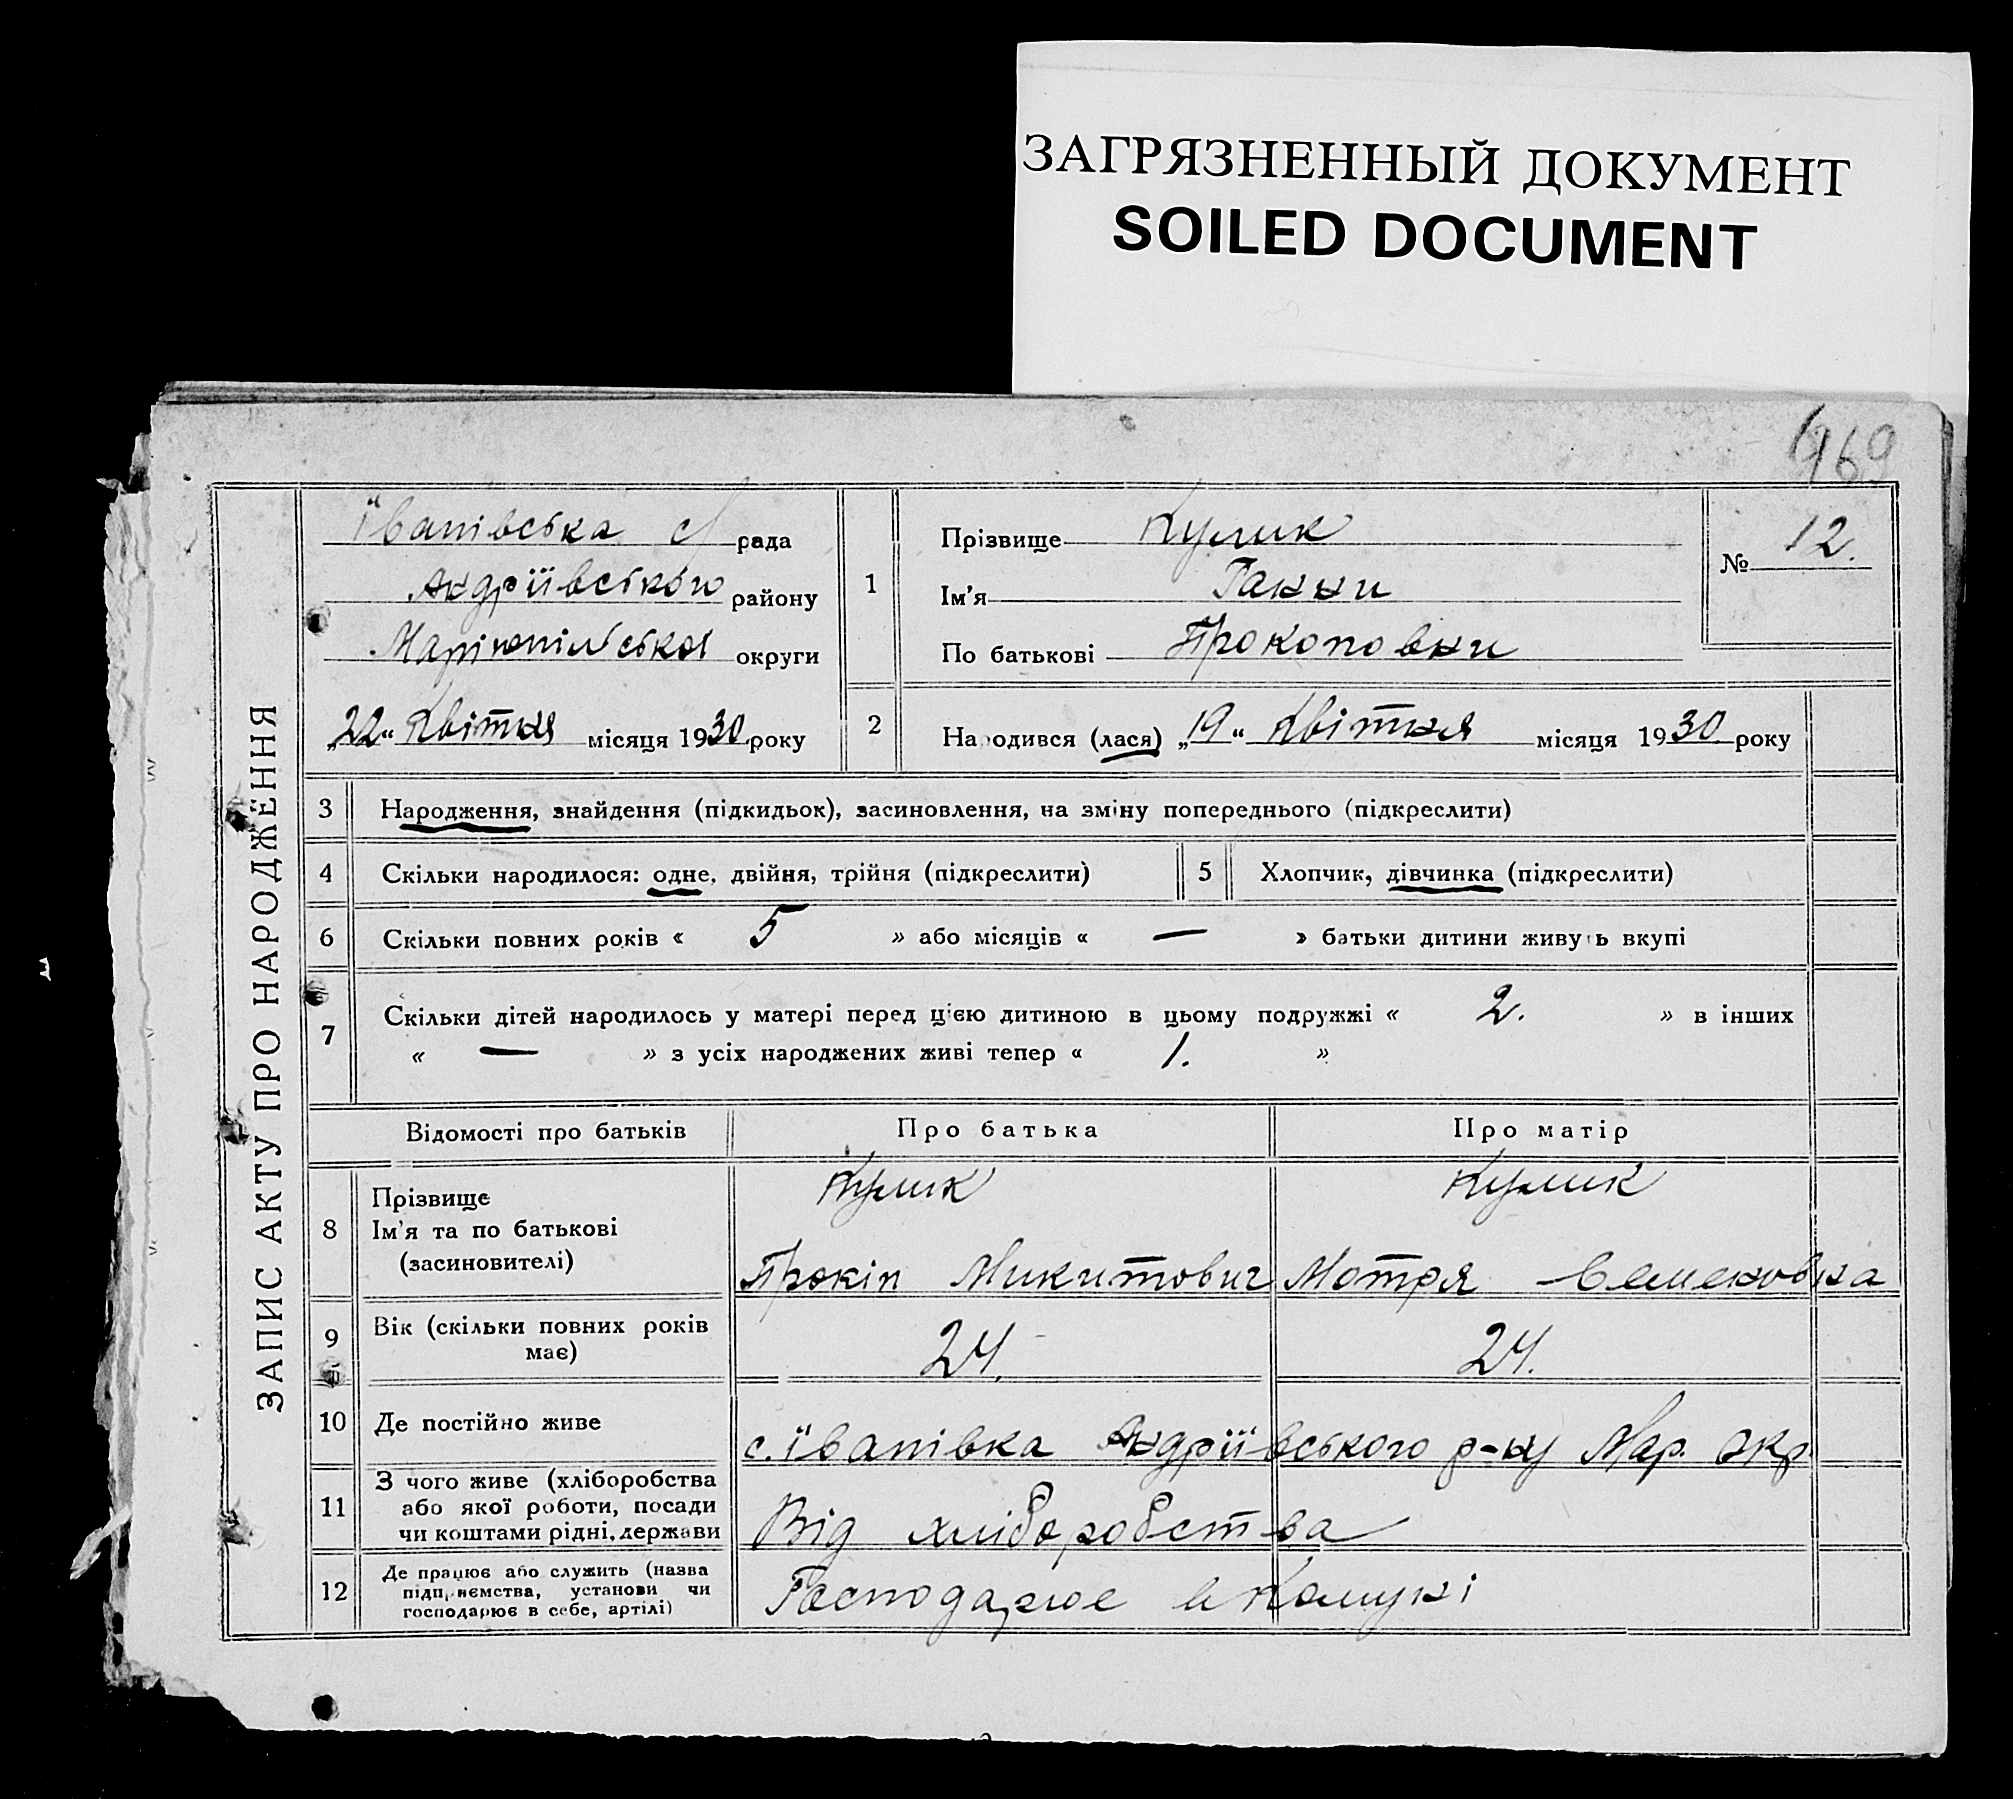 ЗАГРЯЗНЕННЫЙ ДОКУМЕНТ
SOILED DOCUMENT
969
ЗАПИС АКТУ ПРО НАРОДЖЕННЯ
Їванівська с/рада
Андріївського району
Маріюпільської округи
„22“ Квітня місяця 1930 року
1
Прізвище Кулик
Ім'я Ганни
По батькові Прокоповни
№ 12.
2 Народився (лася) „19“ Квітня місяця 1930 року
3 Народження, знайдення (підкидьок), засиновлення, на зміну попереднього (підкреслити)
4 Скільки народилося: одне, двійня, трійня (підкреслити) 5 Хлопчик, дівчинка (підкреслити)
6 Скільки повних років « 5 » або місяців « — » батьки дитини живуть вкупі
7 Скільки дітей народилось у матері перед цією дитиною в цьому подружжі « 2. » в інших
« — » з усіх народжених живі тепер « 1. »
Відомості про батьків Про батька Про матір
8 Прізвище Кулик Кулик
Ім'я та по батькові
(засиновителі) Прокіп Микитович Мотря Семеновна
9 Вік (скільки повних років
має) 24. 24.
10 Де постійно живе с. Їванівка Андріївського р-ну Мар. окр
11 З чого живе (хліборобства
або якої роботи, посади
чи коштами рідні, держави Від хліборобства
12 Де працює або служить (назва
підприємства, установи чи
господарює в себе, артілі) Господарює в Комуні